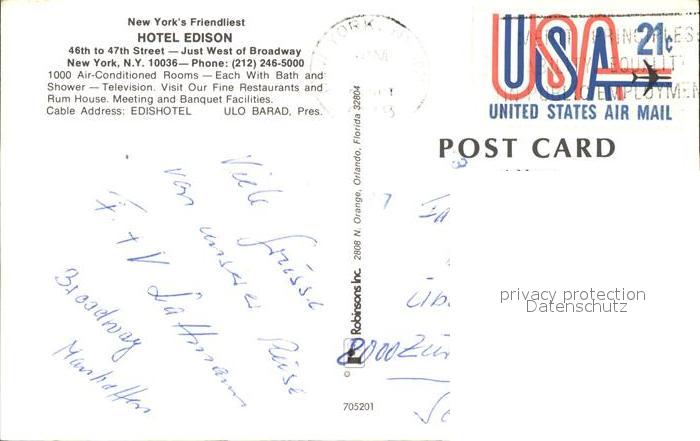 New York's Friendliest
HOTEL EDISON
46th to 47th Street — Just West of Broadway
New York, N.Y. 10036 — Phone: (212) 246-5000
1000 Air-Conditioned Rooms — Each With Bath and
Shower — Television. Visit Our Fine Restaurants and
Rum House. Meeting and Banquet Facilities.
Cable Address: EDISHOTEL ULO BARAD, Pres.
Viele Grüsse
von unserer Reise
F + V
Broadway
Manhattan
Robinsons Inc. 2808 N. Orange, Orlando, Florida 32804
705201
USA 21c
UNITED STATES AIR MAIL
POST CARD
8000 Zür
privacy protection
Datenschutz